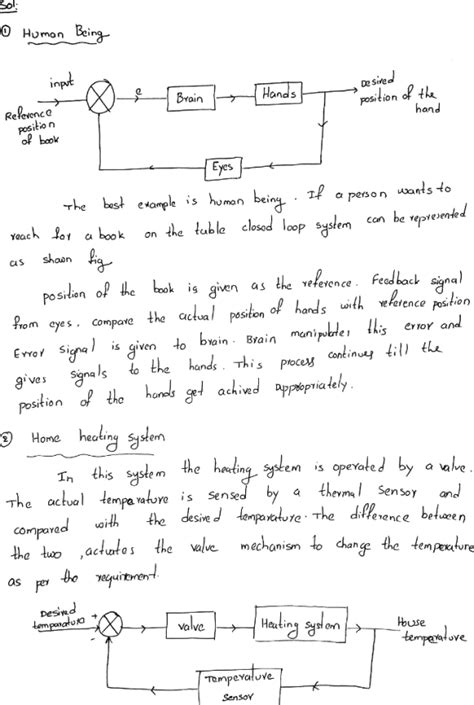 Sol:
① Human Being
input
Reference
position
of book
e
Brain
Hands
Desired
position of the
hand
Eyes
The best example is human being. If a person wants to
reach for a book on the table closed loop system can be represented
as shown fig
position of the book is given as the reference. Feedback signal
from eyes, compare the actual position of hands with reference position
Error signal is given to brain. Brain manipulates this error and
gives signals to the hands. This process continues till the
position of the hands get achived appropriately.
② Home heating system
In this system the heating system is operated by a valve.
The actual temperature is sensed by a thermal sensor and
compared with the desired temparature. The difference between
the two, actuates the valve mechanism to change the temperature
as per the requirement.
Desired
temparature
+
-
valve
Heating system
House
temperature
Temperature
sensor